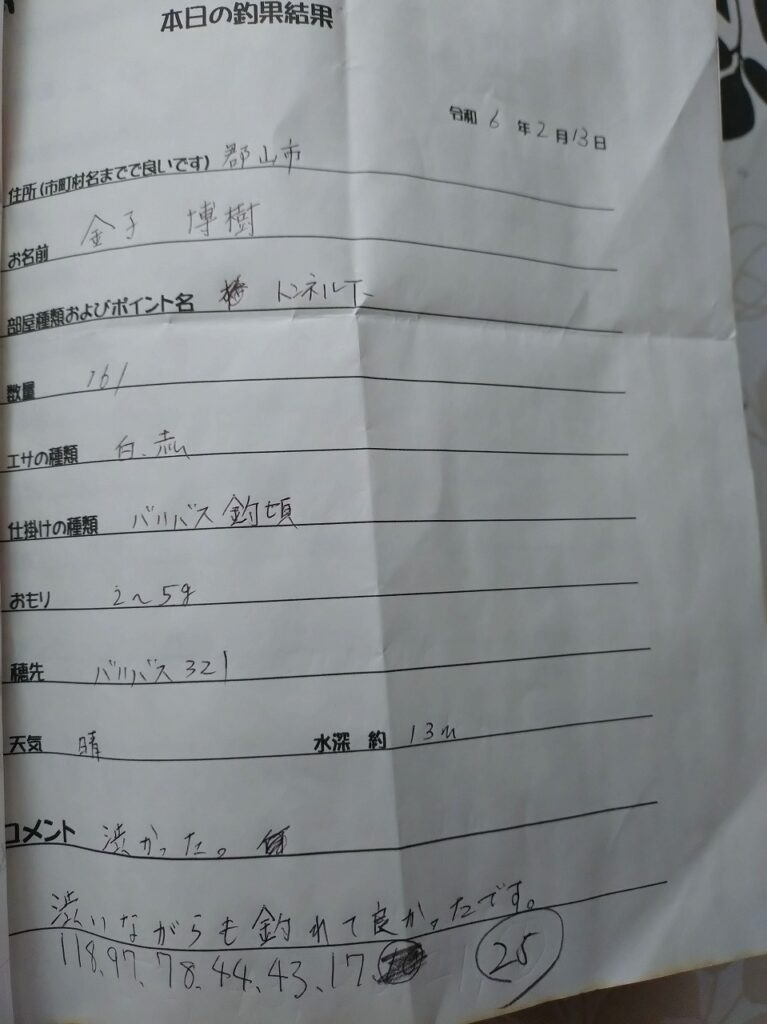 本日の釣果結果
令和 6 年 2 月 13 日
住所(市町村名までで良いです) 郡山市
お名前 金子 博樹
部屋種類およびポイント名 トンネル下
数量 161
エサの種類 白、赤
仕掛けの種類 バリバス 釣頃
おもり 2〜5g
穂先 バリバス 321
天気 晴 水深 約 13m
コメント 渋かった。
渋いながらも釣れて良かったです。
118、97、78、44、43、17、
25